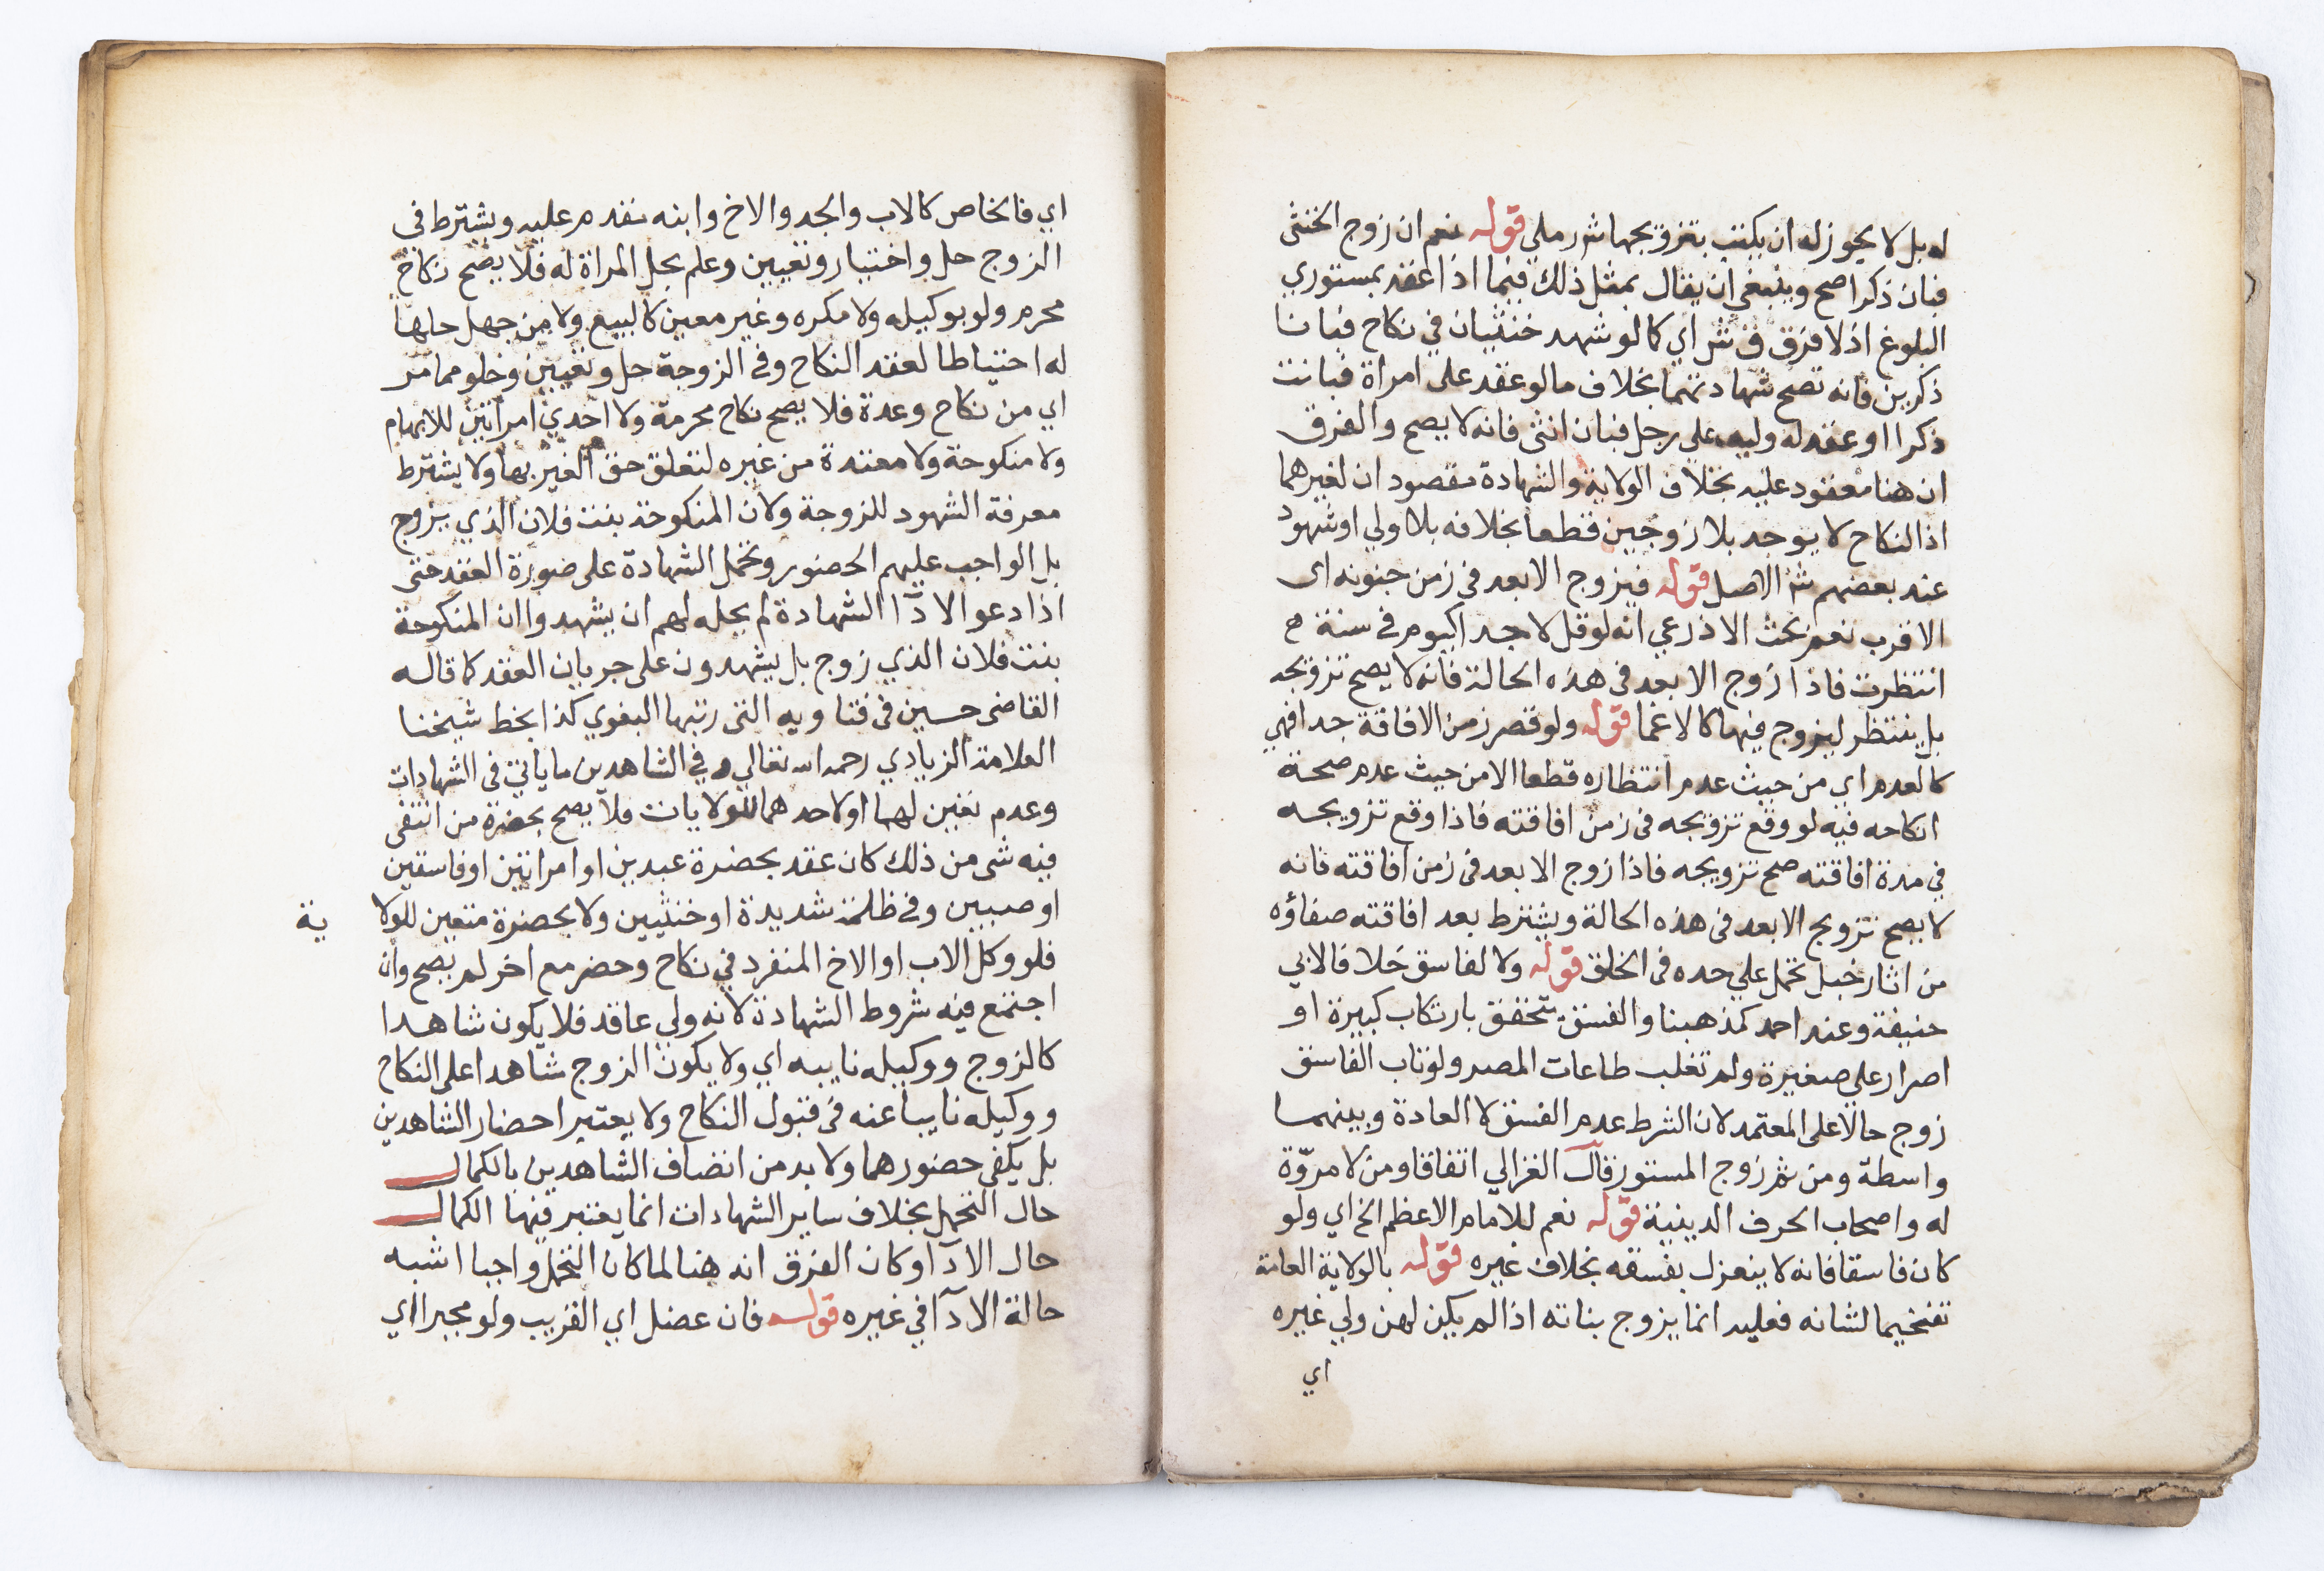 له بل لا يجوز له ان يكتب بتزويجها شر ملي قوله نعم ان زوج الخنثى
فبان ذكرا صح وينبغي ان يقال بمثل ذلك فيما اذا عقد بمستوري
البلوغ اذ لا فرق ق ش اي كما لو شهد خنثيان في نكاح فبانا
ذكرين فانه تصح شهادتهما بخلاف ما لو عقد على امراة فبانت
ذكرا او عقد له وليه على رجل فبان انثى فانه لا يصح والفرق
ان هنا معقود عليه بخلاف الولاية والشهادة مقصود ان لغيرهما
اذ النكاح لا يوجد بلا زوجين قطعا بخلافه بلا ولي او شهود
عند بعضهم ش الاصل قوله فيزوج الابعد في زمن جنونه اى
الاقرب نعم بحث الاذرعي انه لو قل لا جدا كيوم في سنة ح
انتظرت فاذا زوج الابعد في هذه الحالة فانه لا يصح تزويجه
بل ينتظر ليزوج فيها كالاغما قوله ولو قصر زمن الافاقة جدا فهي
كالعدم اي من حيث عدم انتظاره قطعا الا من حيث عدم صحة
انكاحه فيه لو وقع تزويجه في زمن افاقته فاذا وقع تزويجه
في مدة افاقته صح تزويجه فاذا زوج الابعد في زمن افاقته فانه
لا يصح تزويج الابعد في هذه الحالة ويشترط بعد افاقته صفاؤه
من اثار خبل تحمل علي حده في الخلق قوله ولا لفاسق خلافا لابي
حنيفة وعند احمد كمذهبنا والفسق يتحقق بارتكاب كبيرة او
اصرار علي صغيرة ولم تغلب طاعات المصر ولو تاب الفاسق
زوج حالا على المعتمد لان الشرط عدم الفسق لا العادة وبينهما
واسطة ومن ثم زوج المستور قال الغزالي اتفاقا ومن لا مروّة
له واصحاب الحرف الدينية قوله نعم للامام الاعظم الخ اي ولو
كان فاسقا فانه لا ينعزل بفسقه بخلاف غيره قوله بالولاية العامة
تفخيما لشانه فعليه انما يزوج بناته اذا لم يكن لهن ولي غيره
اي
اي فالخاص كالاب والجد والاخ وابنه نقدم عليه ويشترط في
الزوج حل واختيار وتعيين وعلم بحل المراة له فلا يصح نكاح
محرم ولو بوكيله ولا مكره وغير معين كالبيع ولا من جهل حلها
له احتياطا لعقد النكاح وفي الزوجة حل وتعيين وخلو مما مر
اي من نكاح وعدة فلا يصح نكاح محرمة ولا احدي امراتين للابهام
ولا منكوحة ولا معتدة من غيره لتعلق حق الغير بها ولا يشترط
معرفة الشهود للزوجة ولان المنكوحة بنت فلان الذي يزوج
بل الواجب عليهم الحضور وتحمل الشهادة على صورة العقد حتى
اذا دعوا لادآ الشهادة لم يحله لهم ان يشهدوا ان المنكوحة
بنت فلان الذي زوج بل يشهدون على جريان العقد كما قاله
القاضى حسين في فتاويه التى رتبها البغوي كذا بخط شيخنا
العلامة الزيادي رحمه الله تعالي وفي الشاهدين ما ياتي في الشهادات
وعدم تعين لهما او لاحدهما للولايات فلا يصح بحضرة من انتفى
فيه شى من ذلك كان عقد بحضرة عبدين او امراتين او فاسقين
او صبيين وفي ظلمة شديدة او خنثيين ولا بحضرة متعين للولا ية
فلو وكل الاب او الاخ المنفرد في نكاح وحضر مع اخر لم يصح وان
اجتمع فيه شروط الشهادة لانه ولي عاقد فلا يكون شاهدا
كالزوج ووكيله نايبه اي ولا يكون الزوج شاهدا على النكاح
ووكيله نايبا عنه في قبول النكاح ولا يعتبر احضار الشاهدين
بل يكفي حضورهما ولا بد من انصاف الشاهدين بالكمال
حال التحمل بخلاف ساير الشهادات انما يعتبر فيها الكمال
حال الادآ وكان الفرق انه هنا لما كان التحمل واجبا اشبه
حالة الادآ في غيره قوله فان عضل اي القريب ولو مجبرا اي